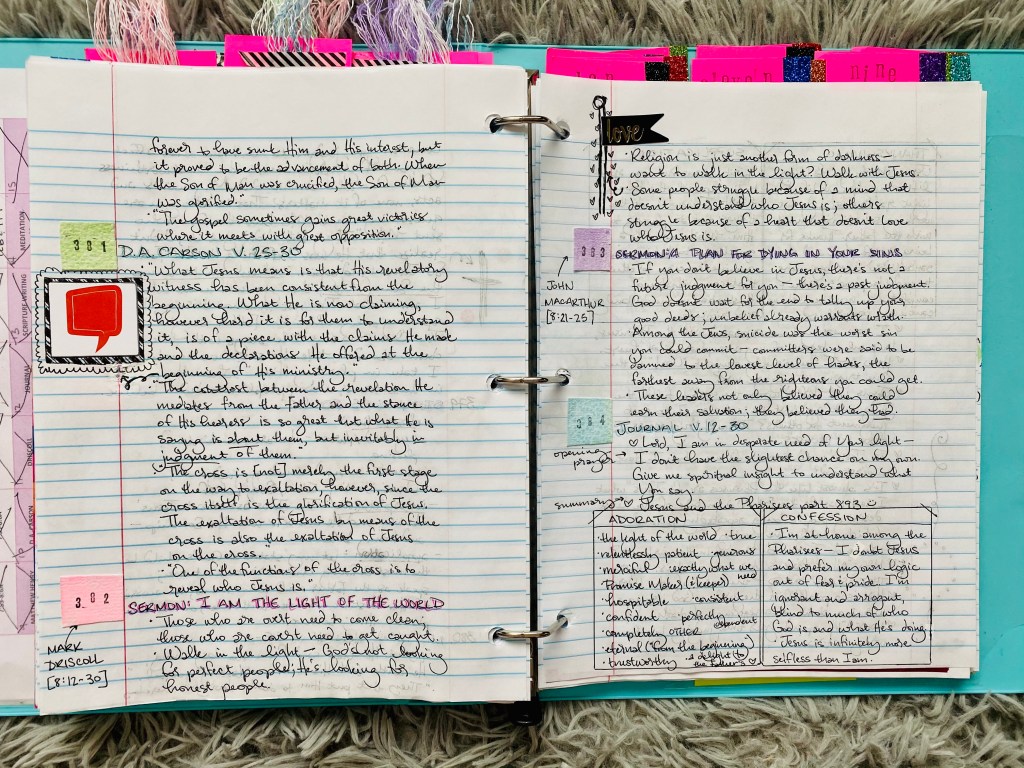 forever to have sunk Him and His interest, but
it proved to be the advancement of both. When
the Son of Man was crucified, the Son of Man
was glorified."
·"The gospel sometimes gains great victories
where it meets with great opposition."
381
D.A. CARSON V. 25-30
·"What Jesus means is that His revelatory
witness has been consistent from the
beginning. What He is now claiming,
however hard it is for them to understand
it, is of a piece with the claims He made
and the declarations He offered at the
beginning of His ministry."
·"The contrast between the revelation He
mediates from the Father and the stance
of His hearers is so great that what He is
saying is about them, but inevitably in
judgment of them."
·"The cross is [not] merely the first stage
on the way to exaltation, however, since the
cross itself is the glorification of Jesus.
The exaltation of Jesus by means of the
cross is also the exaltation of Jesus
on the cross."
·"One of the functions of the cross is to
reveal who Jesus is."
382
SERMON: I AM THE LIGHT OF THE WORLD
MARK
DRISCOLL
[8:12-30]
·Those who are overt need to come clean;
those who are covert need to get caught.
·Walk in the light—God's not looking
for perfect people; He's looking for
honest people.
love
·Religion is just another form of darkness—
want to walk in the light? Walk with Jesus.
·Some people struggle because of a mind that
doesn't understand who Jesus is; others
struggle because of a heart that doesn't love
who Jesus is.
383
SERMON: A PLAN FOR DYING IN YOUR SINS
JOHN
MACARTHUR
[8:21-25]
·If you don't believe in Jesus, there's not a
future judgment for you—there's a past judgment.
God doesn't wait for the end to tally up your
good deeds; unbelief already warrants wrath.
·Among the Jews, suicide was the worst sin
you could commit—committers were said to be
damned to the lowest level of hades, the
farthest away from the righteous you could get.
·These leaders not only believed they could
earn their salvation; they believed they had.
384
JOURNAL V. 12-30
opening
prayer
♡ Lord, I am in desperate need of Your light—
I don't have the slightest chance on my own.
Give me spiritual insight to understand what
You say.
summary
♡ Jesus and the Pharisees part 893
ADORATION
·the light of the world ·true
·relentlessly patient ·generous
·merciful ·exactly what we need
·Promise Maker (+ Keeper)
·hospitable ·consistent
·confident ·perfectly dependent
·completely OTHER
·eternal (from the beginning)
·trustworthy ·a delight to the Father's ♡
CONFESSION
·I'm at-home among the
Pharisees—I doubt Jesus
and prefer my own logic
out of fear + pride. I'm
ignorant and arrogant,
blind to much of who
God is and what He's doing.
·Jesus is infinitely more
selfless than I am.
nine
MEDITATION
SCRIPTURE WRITING
JOURNAL
DRISCOLL
D.A. CARSON